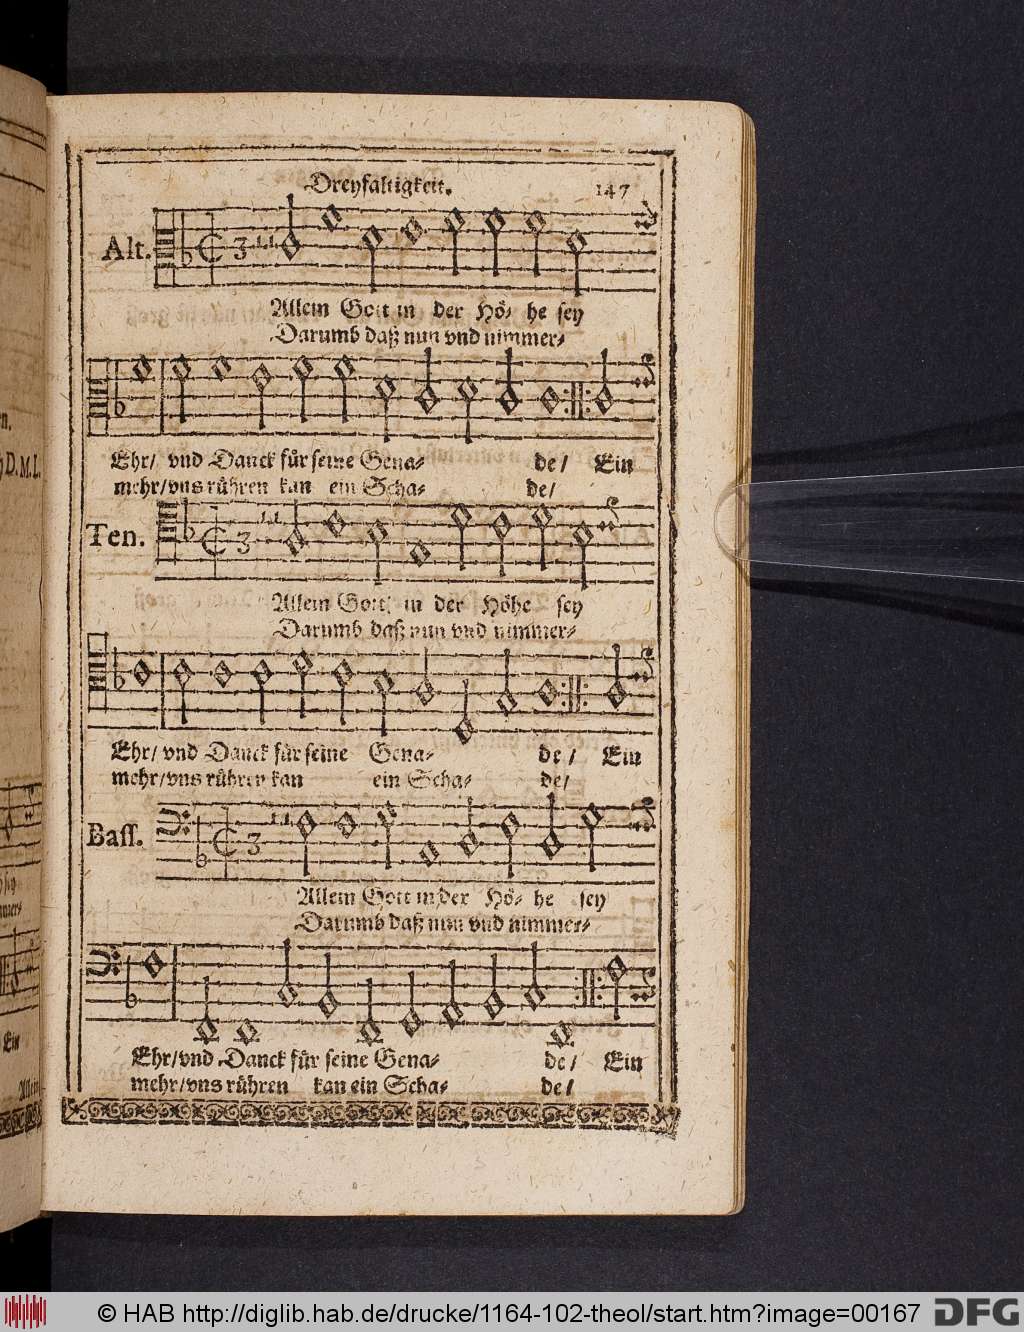 Dreyfaltigkeit. 147
Alt.
Allein Gott in der Hö- he sey
Darumb daß nun vnd nimmer-
Ehr/ vnd Danck für seine Gena- de/ Ein
mehr/vns rühren kan ein Scha- de/
Ten.
Allein Gott in der Höhe sey
Darumb daß nun vnd nimmer-
Ehr/ vnd Danck für seine Gena- de/ Ein
mehr/vns rühren kan ein Scha- de/
Bass.
Allein Gott in der Hö- he sey
Darumb daß nun vnd nimmer-
Ehr/vnd Danck für seine Gena- de/ Ein
mehr/vns rühren kan ein Scha- de/
D.M.L.
Ein
© HAB http://diglib.hab.de/drucke/1164-102-theol/start.htm?image=00167
DFG